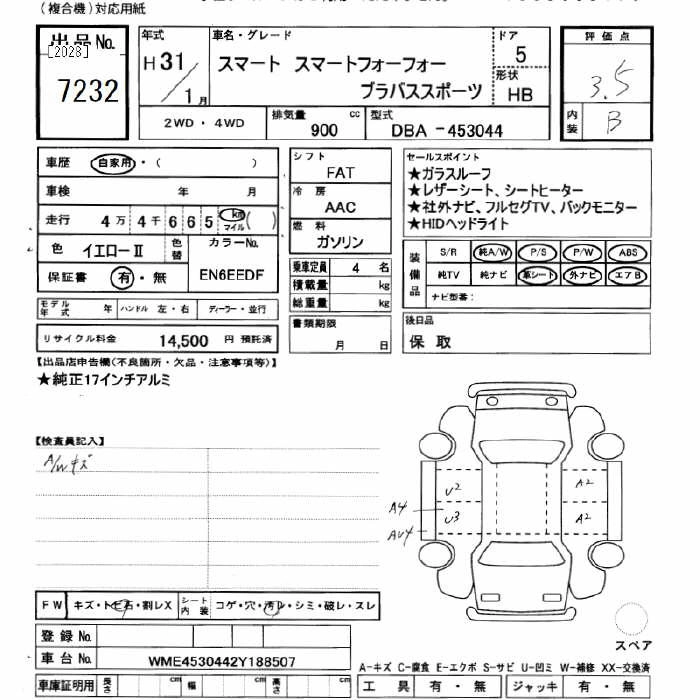 （複合機）対応用紙
出品No.
[2028]
7232
年式
H31/1月
車名・グレード
スマート スマートフォーフォー
ブラバススポーツ
ドア
5
形状
HB
評価点
3.5
内装
B
2WD・4WD
排気量 cc
900
型式
DBA -453044
車歴 自家用・（ ）
車検 年 月
走行 4万 4千 6 6 5 km マイル ( )
色 イエローⅡ 色替
カラーNo.
EN6EEDF
保証書 有・無
モデル年式 年 ハンドル 左・右 ディーラー・並行
リサイクル料金 14,500 円 預託済
シフト
FAT
冷房
AAC
燃料
ガソリン
乗車定員 4 名
積載量 kg
総重量 kg
書類期限
月 日
セールスポイント
★ガラスルーフ
★レザーシート、シートヒーター
★社外ナビ、フルセグTV、バックモニター
★HIDヘッドライト
装備品
S/R 純A/W P/S P/W ABS
純TV 純ナビ 革シート 外ナビ エアB
ナビ型番：
後日品
保 取
【出品店申告欄（不良箇所・欠品・注意事項等）】
★純正17インチアルミ
【検査員記入】
A/W キズ
U2 A2
A4 U3 A2
AU4
FW キズ・トビ石・割レX シート内装 コゲ・穴・汚レ・シミ・破レ・スレ
登録No.
車台No. WME4530442Y188507
車庫証明用 長さ cm 幅 cm 高さ cm
スペア
A-キズ C-腐食 E-エクボ S-サビ U-凹ミ W-補修 XX-交換済
工具 有・無 ジャッキ 有・無